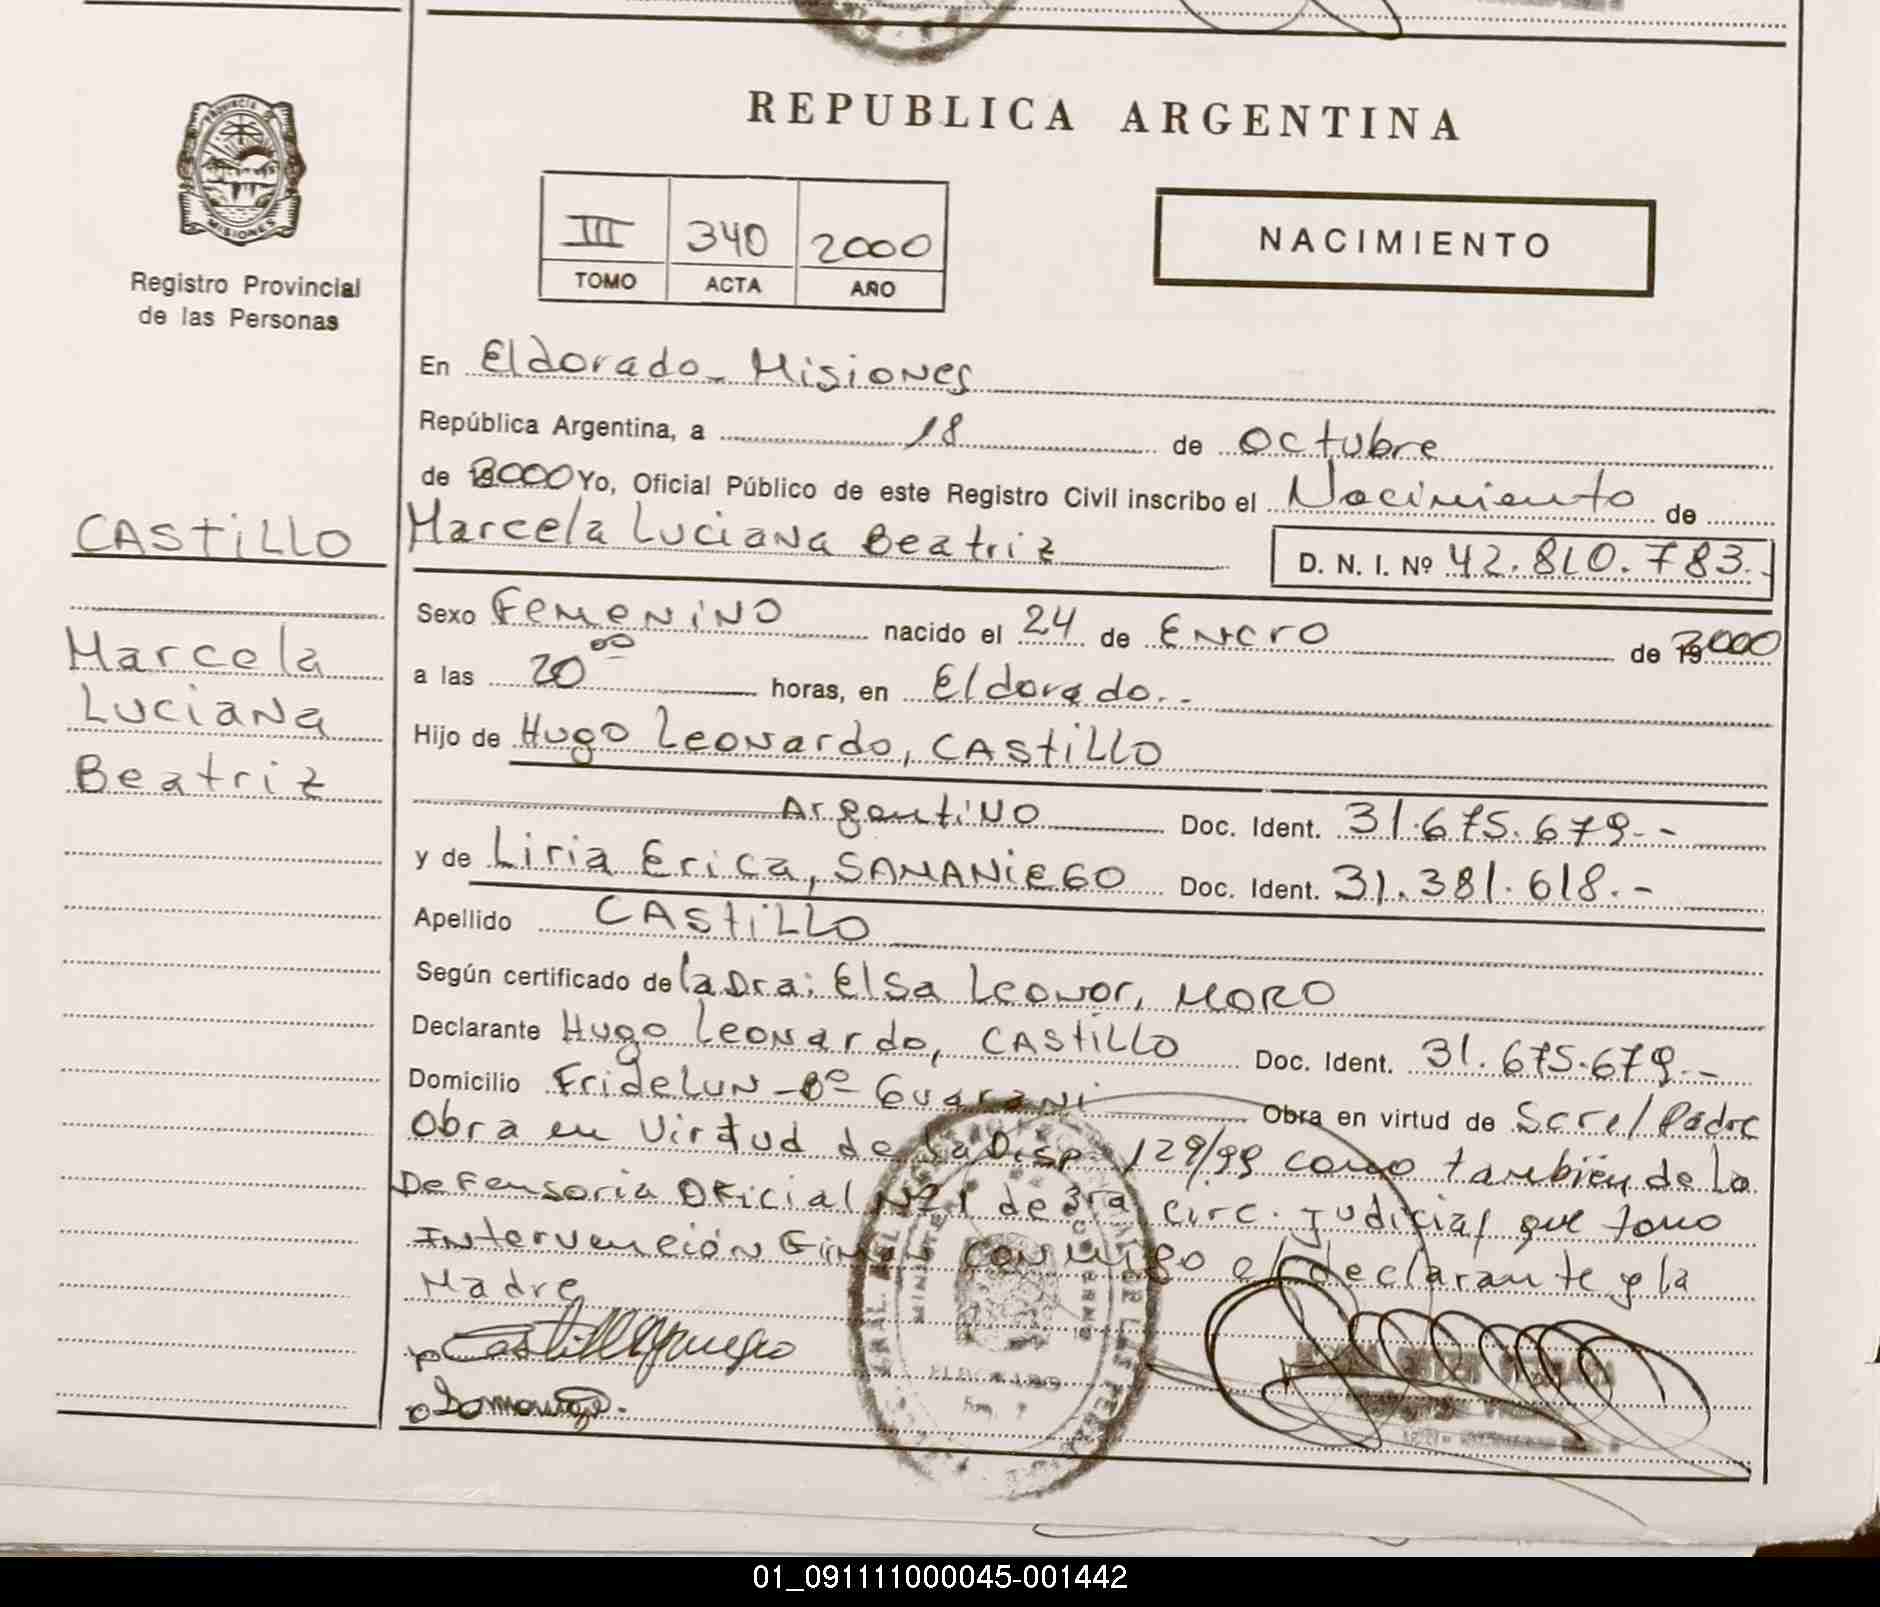 REPUBLICA ARGENTINA
PROVINCIA DE
MISIONES
Registro Provincial
de las Personas
III 340 2000
TOMO ACTA AÑO
NACIMIENTO
En Eldorado - Misiones
República Argentina, a 18 de Octubre
de 2000 Yo, Oficial Público de este Registro Civil inscribo el Nacimiento de
CASTILLO
Marcela Luciana Beatriz D. N. I. Nº 42.810.783.-
Marcela
Luciana
Beatriz
Sexo Femenino nacido el 24 de Enero de 2000
a las 20 00 horas, en Eldorado.-
Hijo de Hugo Leonardo, CASTILLO
Argentino Doc. Ident. 31.675.679.--
y de Liria Erica, SAMANIEGO Doc. Ident. 31.381.618.-
Apellido CASTILLO
Según certificado de la Dra: Elsa Leonor, MORO
Declarante Hugo Leonardo, CASTILLO Doc. Ident. 31.675.679.--
Domicilio Fridelun - Bº Guarani Obra en virtud de Ser el Padre
Obra en Virtud de la Disp. 129/99 como también de la
Defensoria Oficial Nº 1 de 3ra circ. Judicial que tomo
Intervención Firman conmigo el declarante y la
Madre
ELDORADO
01_091111000045-001442